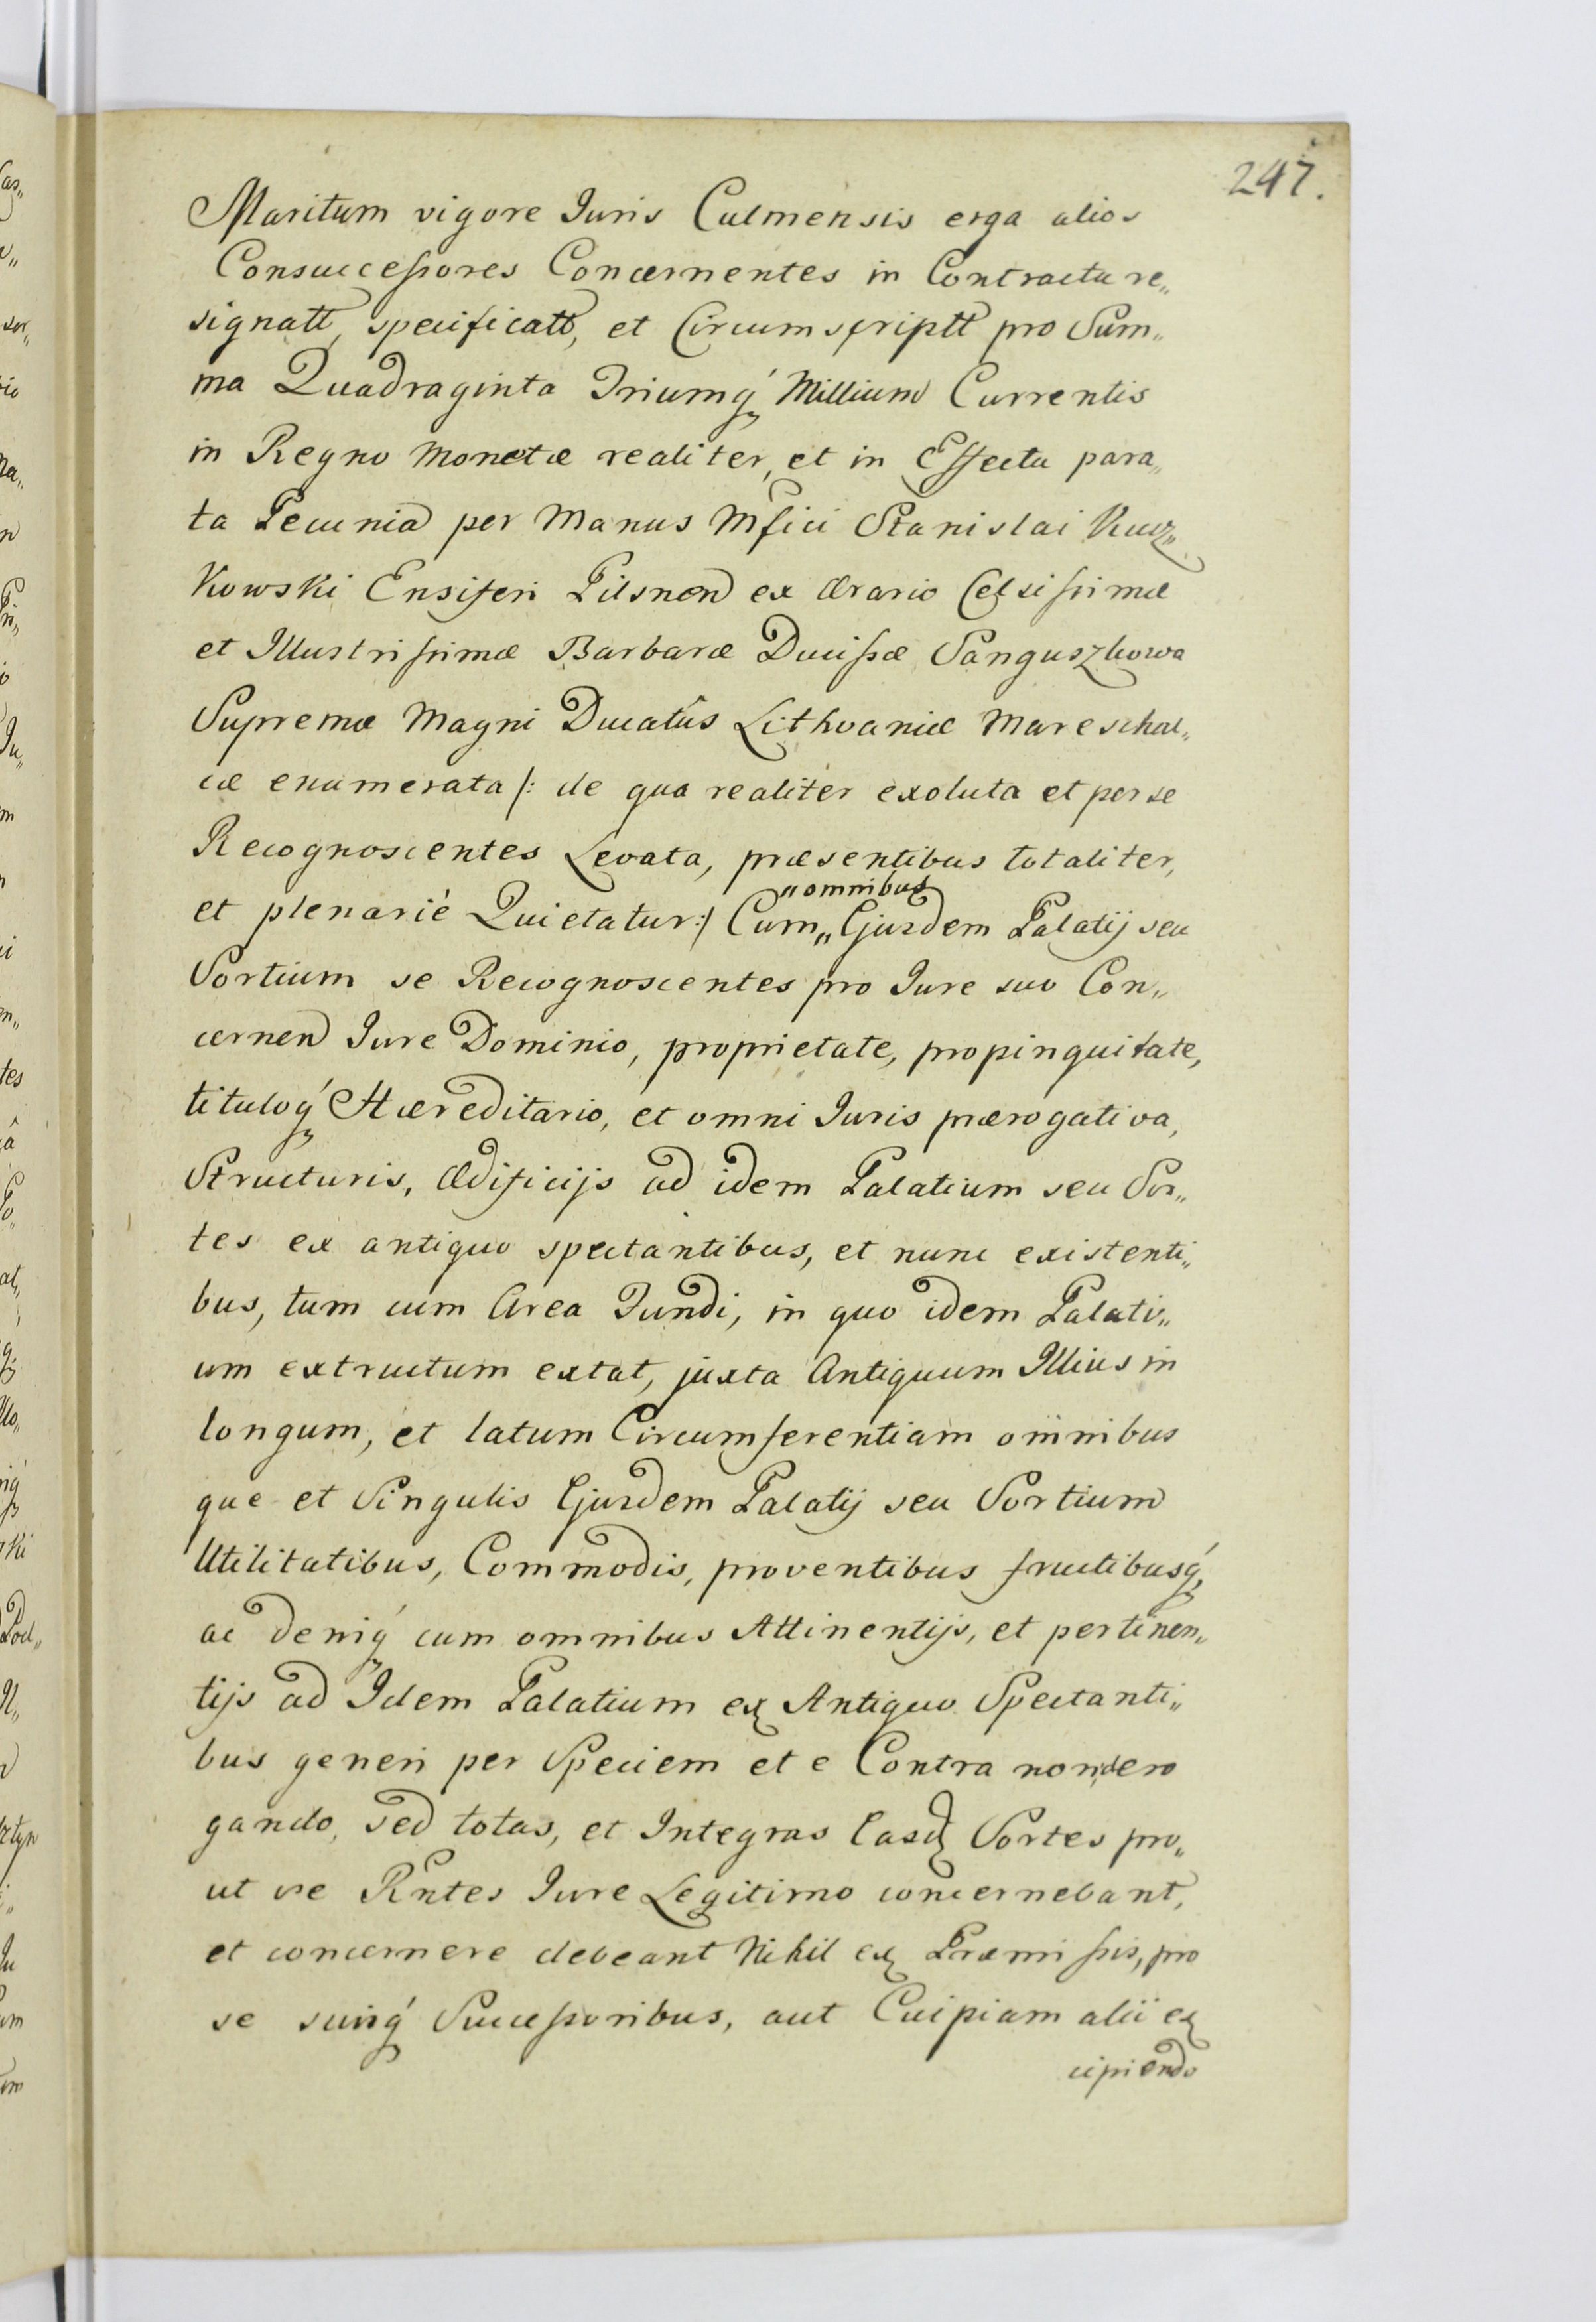 247.
Maritum vigore Juris Culmensis erga alios
Consuccessores Concernentes in Contractu re„
signatt, specificatt, et Circumscriptt pro Sum„
ma Quadraginta Triumq́ Millium Currentis
in Regno Monetæ realiter, et in Effectu para„
ta Pecunia per Manus Mfici Stanislai Kucz„
kowski Ensiferi Pilsnen ex Ærario Celsissimæ
et Illustrissimæ Barbaræ Ducissæ Sanguszkowa
Supremæ Magni Ducatûs Lithvaniæ Mareschal„
cæ enumerata /: de qua realiter exoluta et per se
Recognoscentes Levata, præsentibus totaliter,
et plenarié Quietatur :/ Cum „omnibus„ Ejusdem Palatij seu
Sortium se Recognoscentes pro Jure suo Con„
cernen Jure Dominio, proprietate, propinquitate,
tituloq́ Hæreditario, et omni Juris prærogativa,
Structuris, Ædificijs ad idem Palatium seu Sor„
tes ex antiquo spectantibus, et nunc existenti„
bus, tum cum Area Fundi, in quo idem Palati„
um extructum extat, juxta Antiquum Illius in
longum, et latum Circumferentiam omnibus
que et Singulis Ejusdem Palatij seu Sortium
Utilitatibus, Commodis, proventibus fructibusq́,
ac deniq́ cum omnibus Attinentijs, et pertinen„
tijs ad Idem Palatium ex Antiquo Spectanti„
bus generi per Speciem et e Contra non dero
gando, sed totas, et Integras Easd Sortes pro„
ut se Rntes Jure Legitimo concernebant,
et concernere debeant Nihil ex Præmissis, pro
se suisq́ Successoribus, aut Cuipiam alii ex
cipiendo